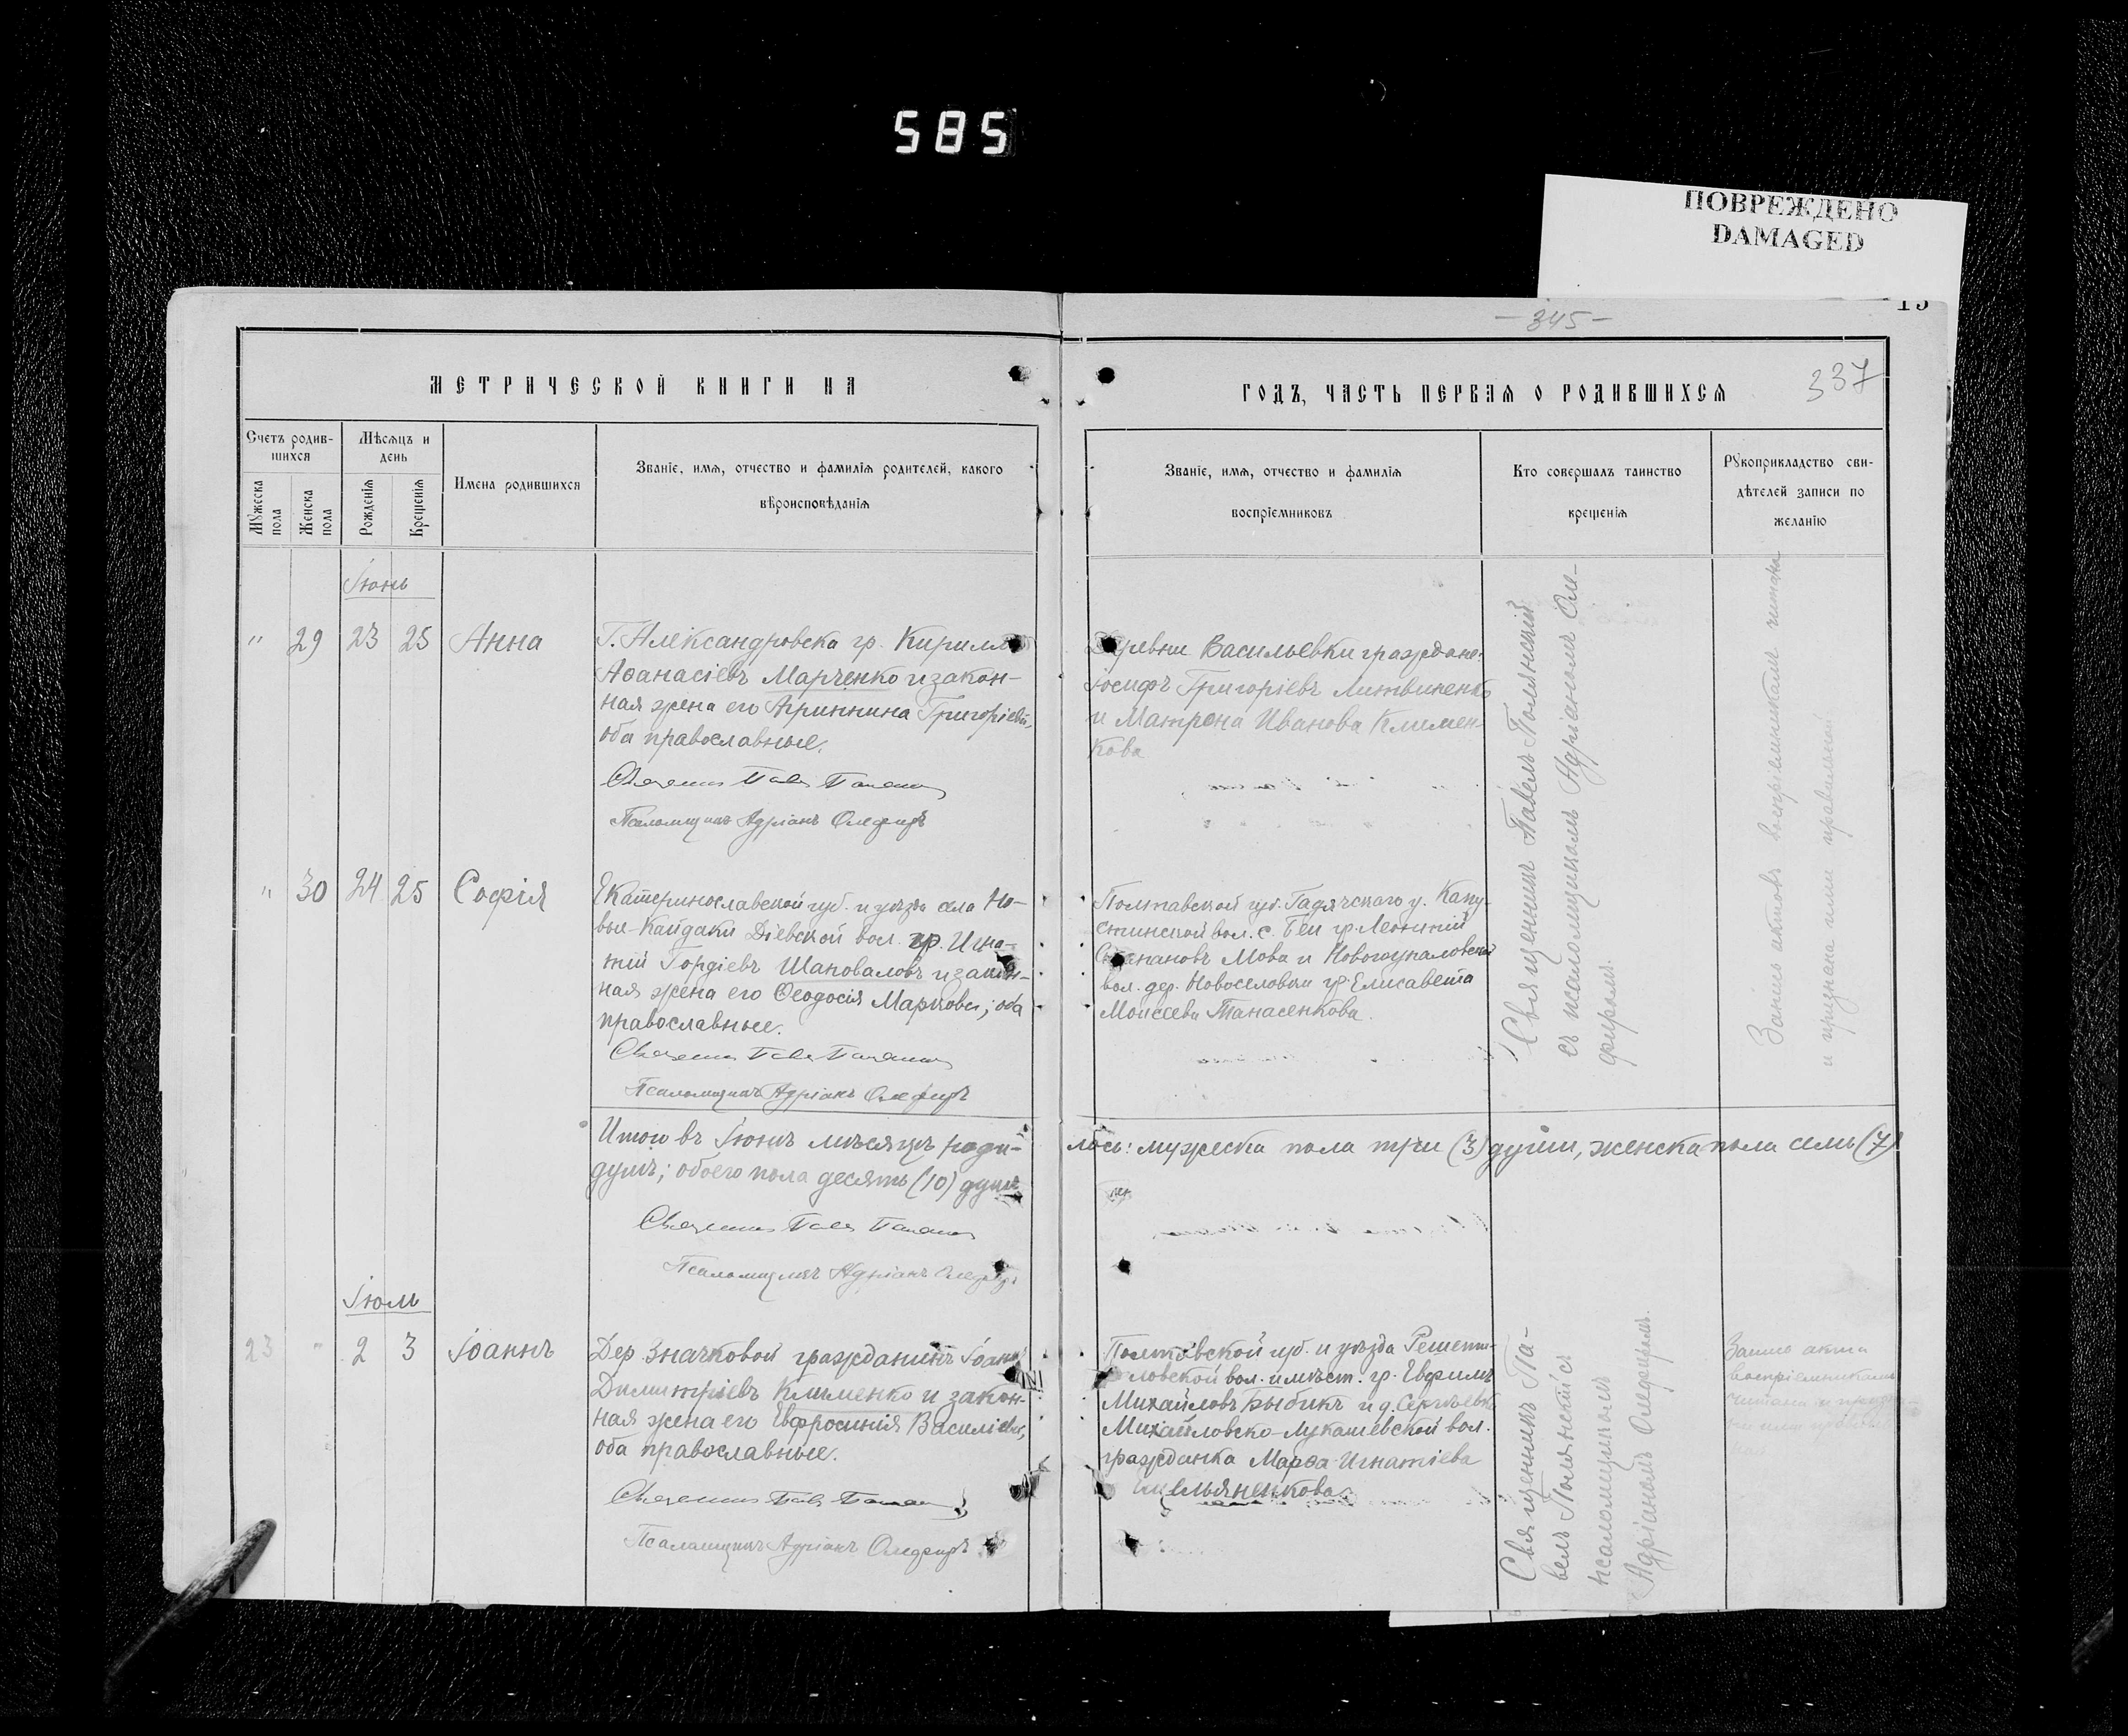 585
ПОВРЕЖДЕНО
DAMAGED
15
-345-
337
МЕТРИЧЕСКОЙ КНИГИ НА
ГОДЪ, ЧАСТЬ ПЕРВАЯ О РОДИВШИХСЯ
Счетъ родив-
шихся
Мужеска пола
Женска пола
Мѣсяцъ и
день
Рожденія
Крещенія
Имена родившихся
Званіе, имя, отчество и фамилія родителей, какого
вѣроисповѣданія
Званіе, имя, отчество и фамилія
воспріемниковъ
Кто совершалъ таинство
крещенія
Рукоприкладство сви-
дѣтелей записи по
желанію
Іюнь
" 29 23 25 Анна
Г. Александровска гр. Кириллъ
Аѳанасіевъ Марченко и закон-
ная жена его Агриппина Григоріева,
оба православные.
Псаломщикъ Адріанъ Олефиръ
Деревни Васильевки граждане:
Іосифъ Григоріевъ Литвиненко
и Матрона Иванова Климен-
кова
Священникъ Павелъ Полянскій
съ псаломщикомъ Адріаномъ Оле-
фиромъ.
Запись актовъ воспріемникам читана
и признана ими правильной
" 30 24 25 Софія
Екатеринославской губ. и уѣзда села Но-
вые-Кайдаки Діевской вол. гр. Игна-
тій Гордіевъ Шаповаловъ и закон-
ная жена его Ѳеодосія Маркова; оба
православные.
Псаломщикъ Адріанъ Олефиръ
Полтавской губ. Гадячскаго у. Капу-
стинской вол. с. Беи гр. Леонтій
Степановъ Мова и Новогупаловской
вол. дер. Новоселовки гр. Елисавета
Моисеева Танасенкова.
Итого въ Іюнѣ мѣсяцѣ роди-
лось: мужеска пола три (3) души, женска пола семь (7)
душъ; обоего пола десять (10) душъ
Псаломщикъ Адріанъ Олефиръ
Іюль
23 " 2 3 Іоаннъ
Дер. Значковой гражданинъ Іоаннъ
Димитріевъ Клименко и закон-
ная жена его Евфросинія Василіева,
оба православные.
Псаломщикъ Адріанъ Олефиръ
Полтавской губ. и уѣзда Решети-
ловской вол. и мѣст. гр. Евфимъ
Михайловъ Быбикъ и д. Сергѣевки
Михайловско-Лукашевской вол.
гражданка Марѳа Игнатіева
Емельяненкова.
Священникъ Па-
велъ Полянскій съ
псаломщикомъ
Адріаномъ Олефиромъ.
воспріемникам
читана и